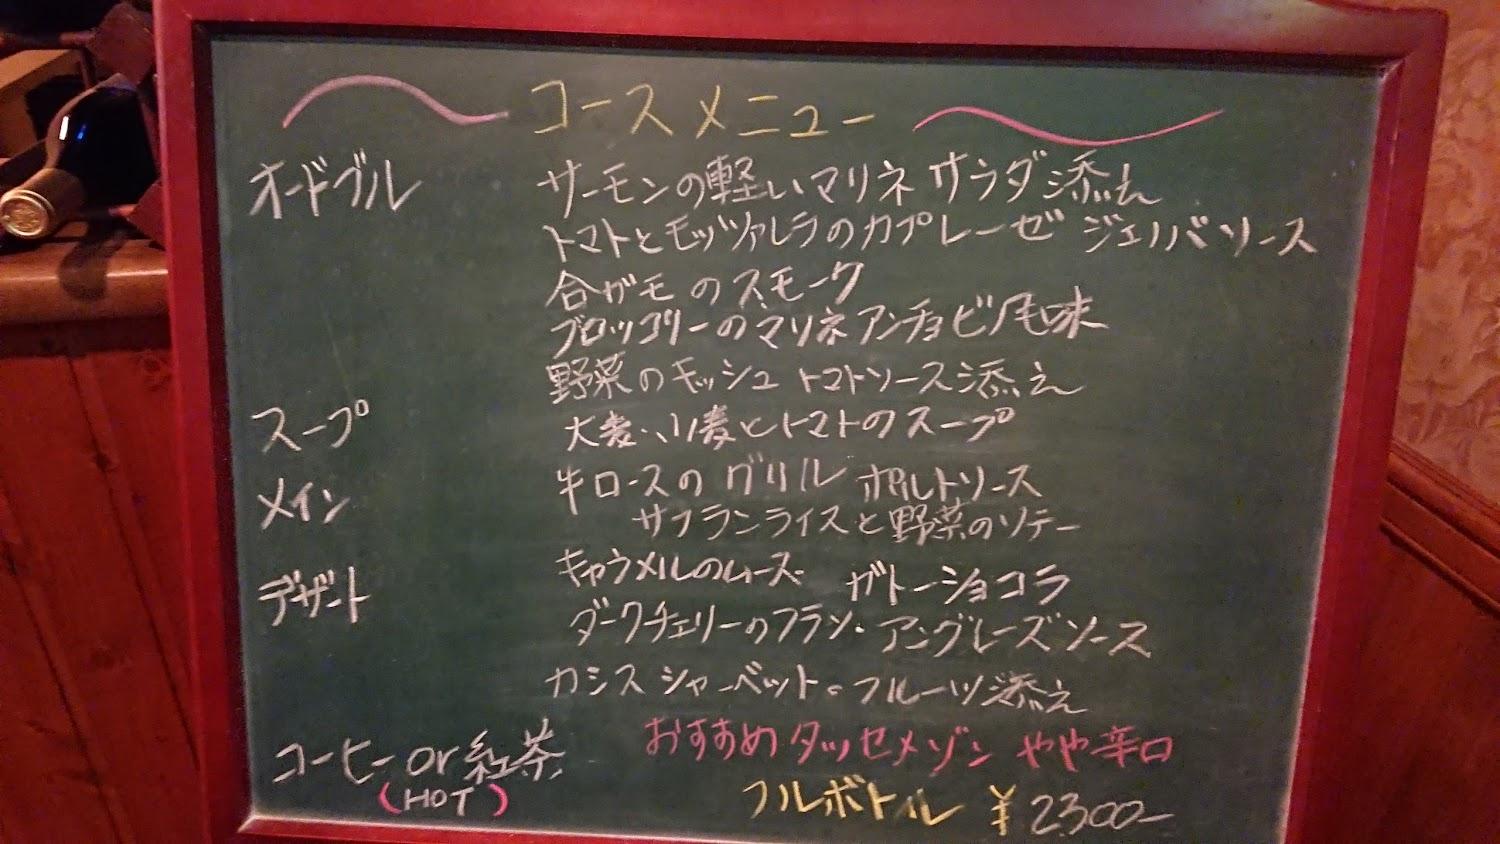 コースメニュー
オードブル サーモンの軽いマリネ サラダ添え
トマトとモッツァレラのカプレーゼ ジェノバソース
合ガモのスモーク
ブロッコリーのマリネ アンチョビ風味
野菜のキッシュ トマトソース添え
スープ 大麦、小麦とトマトのスープ
メイン 牛ロースのグリル ポルトソース
サフランライスと野菜のソテー
デザート キャラメルのムース ガトーショコラ
ダークチェリーのフラン・アングレーズソース
カシスシャーベット。フルーツ添え
コーヒー or 紅茶 おすすめ タッセメゾン やや辛口
(HOT) フルボトル ¥2300-